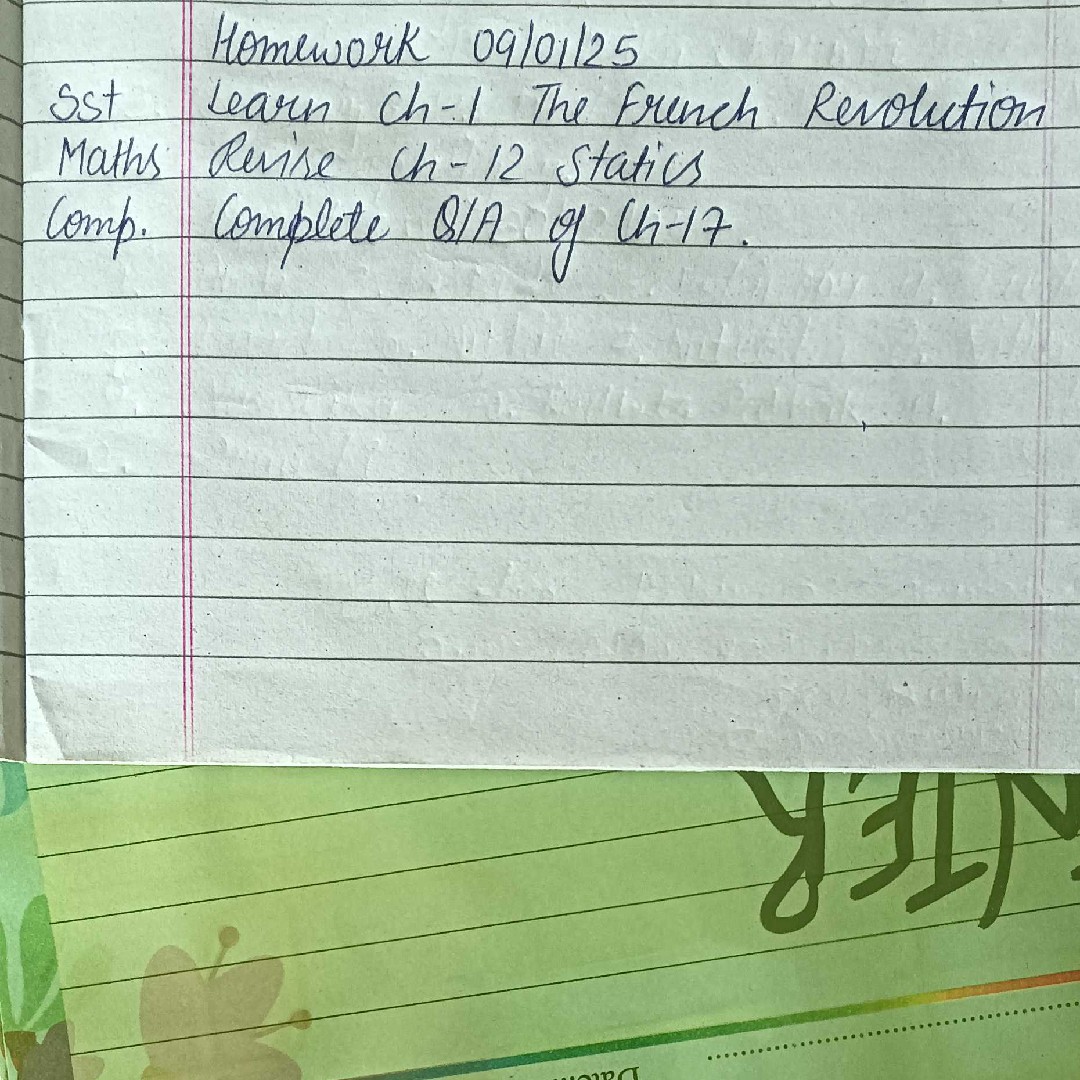 Homework 09/01/25
Sst Learn Ch-1 The French Revolution
Maths Revise Ch-12 Statics
Comp. Complete Q/A of Ch-17.